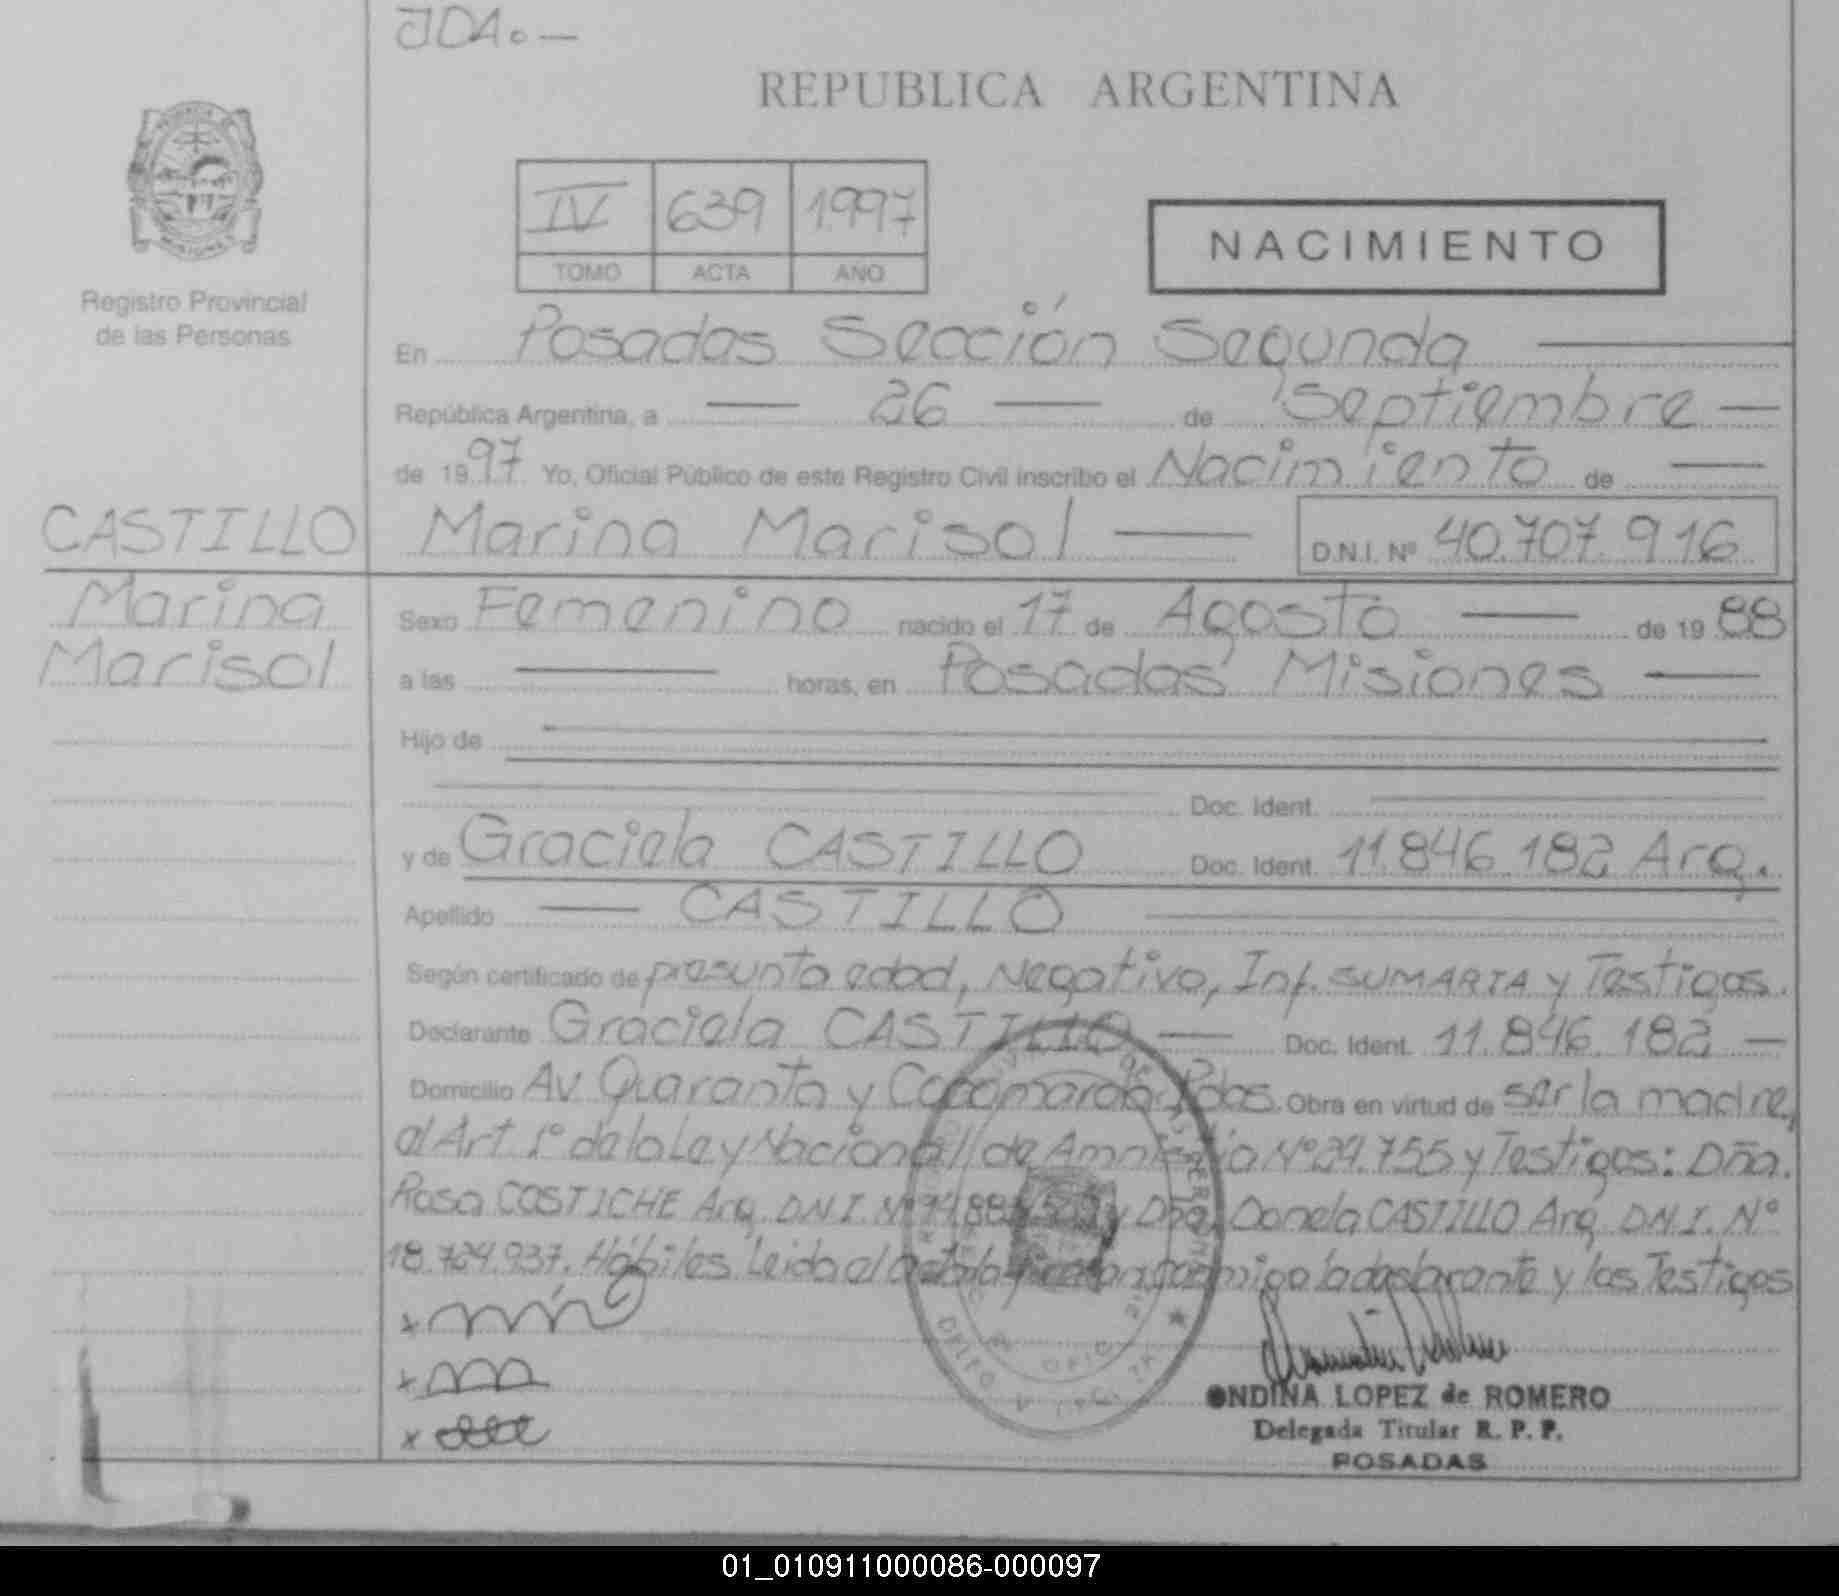 JDA.—
REPUBLICA ARGENTINA
IV 639 1.997
TOMO ACTA AÑO
NACIMIENTO
Registro Provincial
de las Personas
En Posadas Sección Segunda
República Argentina, a 26 de Septiembre
de 1997 Yo, Oficial Público de este Registro Civil inscribo el Nacimiento de
CASTILLO
Marina
Marisol
Marina Marisol D.N.I. Nº 40.707.916
Sexo Femenino nacido el 17 de Agosto de 1988
a las horas, en Posadas Misiones
Hijo de
Doc. Ident.
y de Graciela CASTILLO Doc. Ident. 11.846.182 Arg.
Apellido CASTILLO
Según certificado de presunta edad, Negativo, Inf. SUMARIA y Testigos.
Declarante Graciela CASTILLO Doc. Ident. 11.846.182
Domicilio Av. Quaranta y Pdas. Obra en virtud de ser la madre,
el Art. 1º de la Ley Nacional de Amnistía Nº 24.755 y Testigos: Dña.
Rosa COSTICHE Arg. D.N.I. Nº y Dña. Daniela CASTILLO Arg. D.N.I. Nº
18.724.937. Hábiles Leida el Acta la firman conmigo la declarante y los Testigos
x
x
x
ONDINA LOPEZ de ROMERO
Delegada Titular R. P. P.
POSADAS
01_010911000086-000097